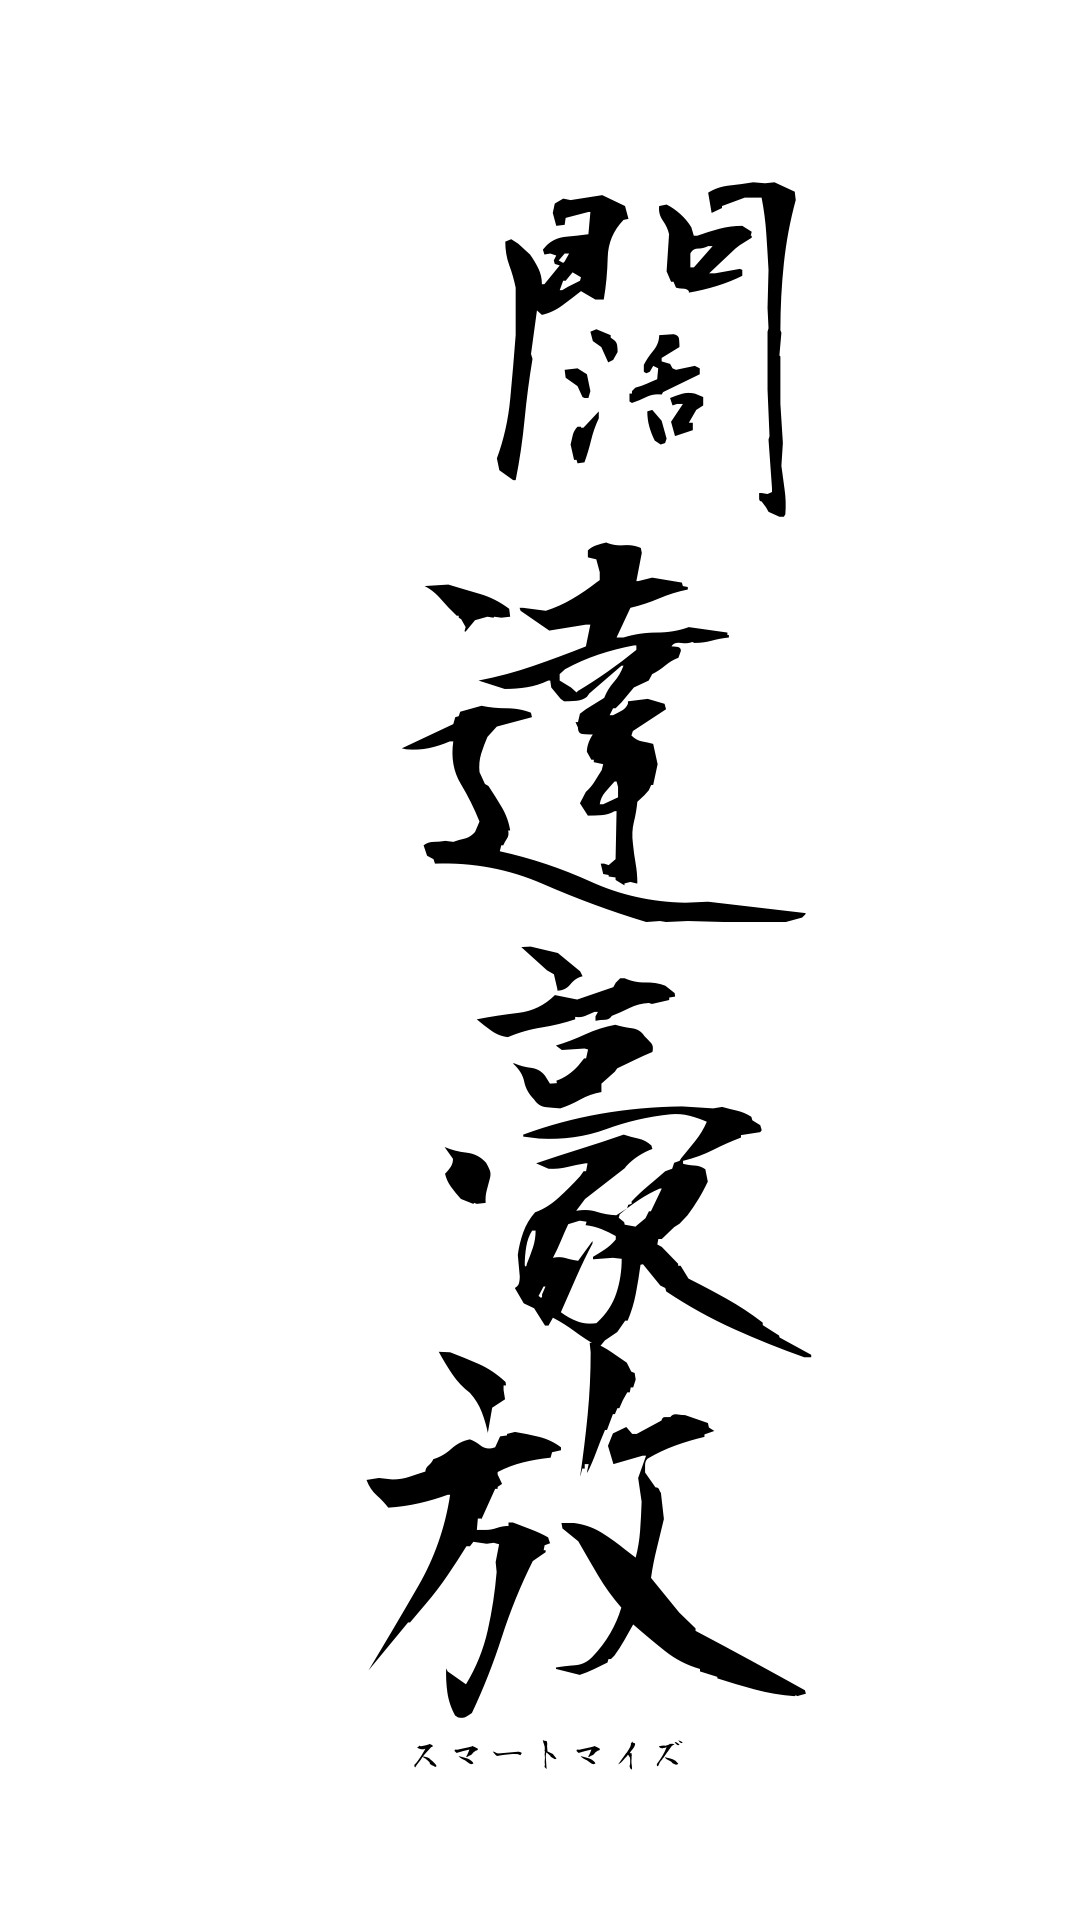 闊達豪放
スマートマイズ